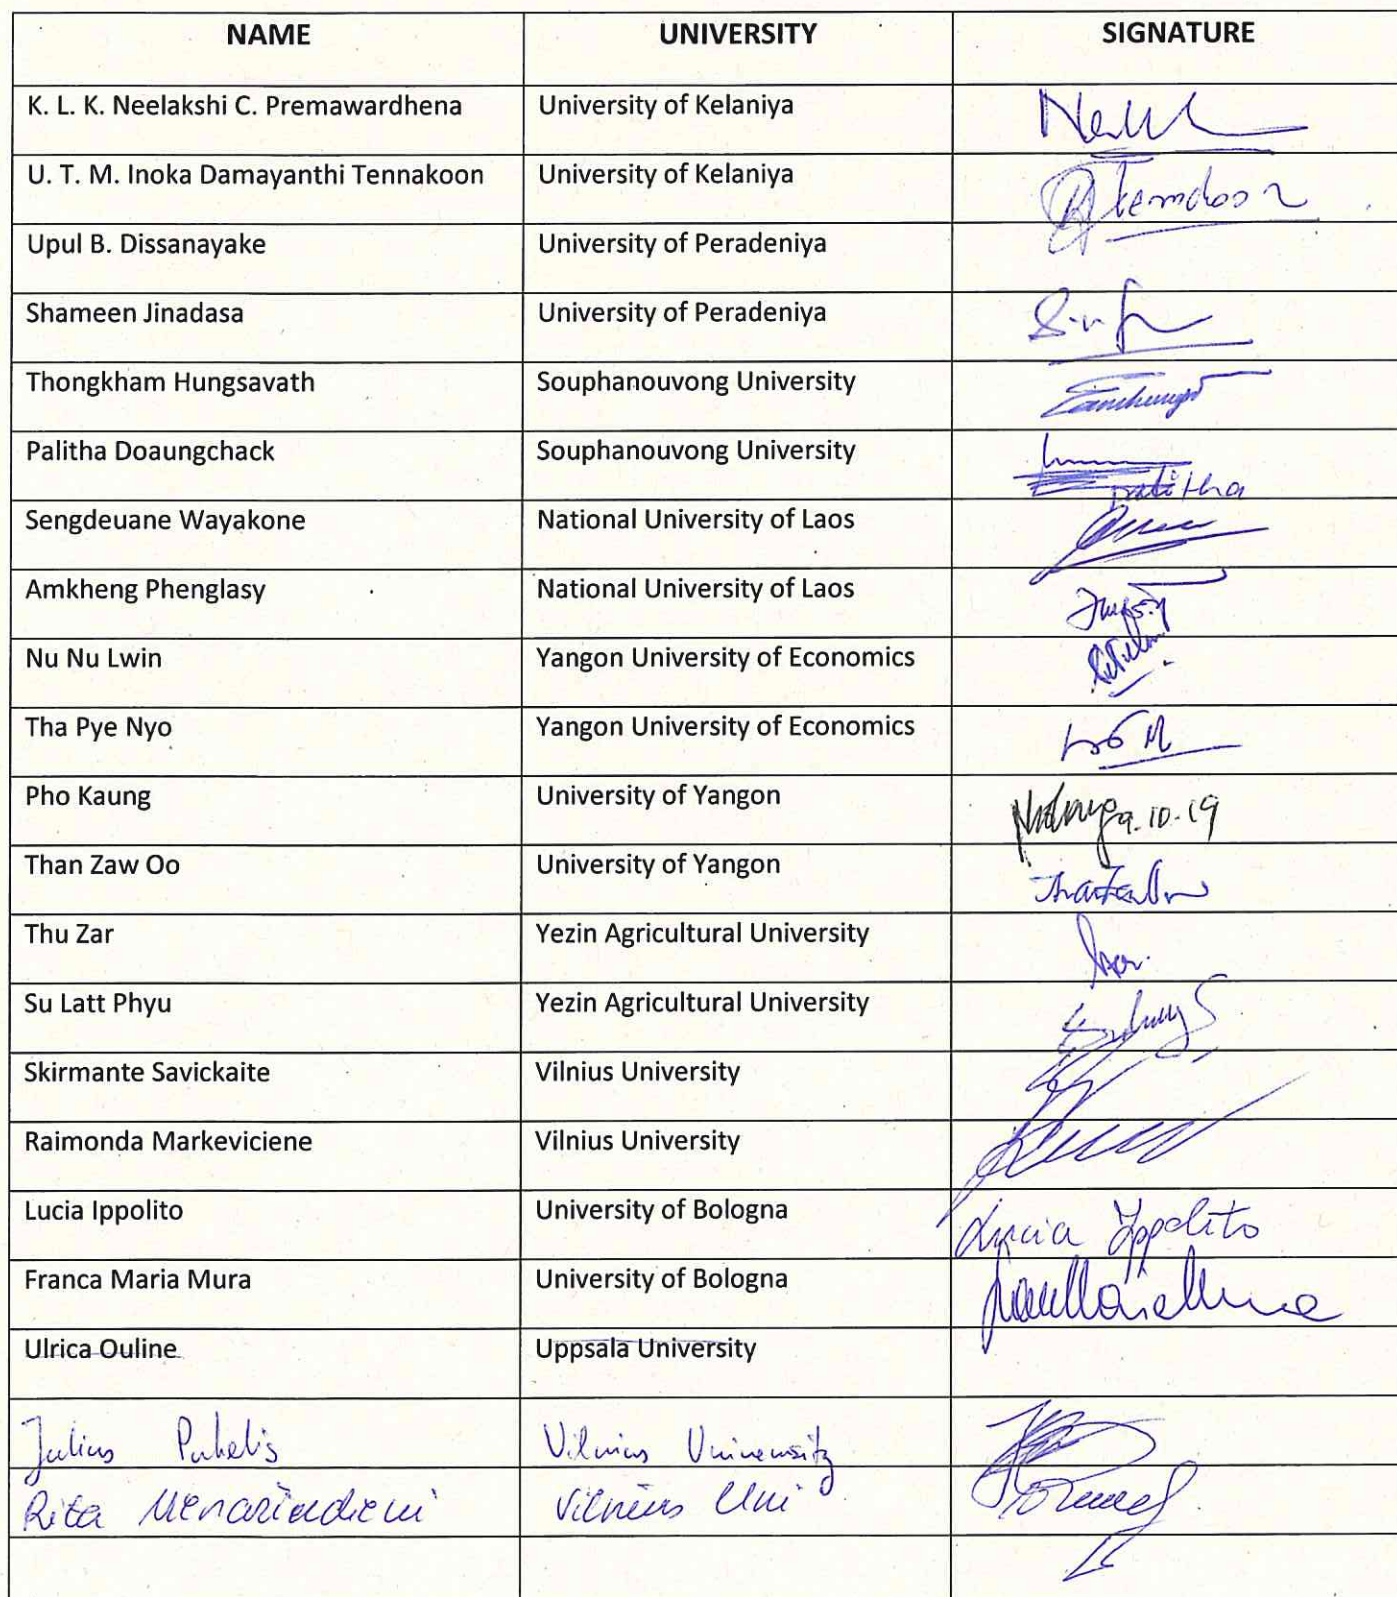 NAME UNIVERSITY SIGNATURE
K. L. K. Neelakshi C. Premawardhena University of Kelaniya
U. T. M. Inoka Damayanthi Tennakoon University of Kelaniya
Upul B. Dissanayake University of Peradeniya
Shameen Jinadasa University of Peradeniya
Thongkham Hungsavath Souphanouvong University
Palitha Doaungchack Souphanouvong University
Palitha
Sengdeuane Wayakone National University of Laos
Amkheng Phenglasy National University of Laos
Nu Nu Lwin Yangon University of Economics
Tha Pye Nyo Yangon University of Economics
Pho Kaung University of Yangon 9-10-19
Than Zaw Oo University of Yangon
Thu Zar Yezin Agricultural University
Su Latt Phyu Yezin Agricultural University
Skirmante Savickaite Vilnius University
Raimonda Markeviciene Vilnius University
Lucia Ippolito University of Bologna Lucia Ippolito
Franca Maria Mura University of Bologna
Ulrica Ouline Uppsala University
Julius Vilnius University
Rita Vilnius Uni